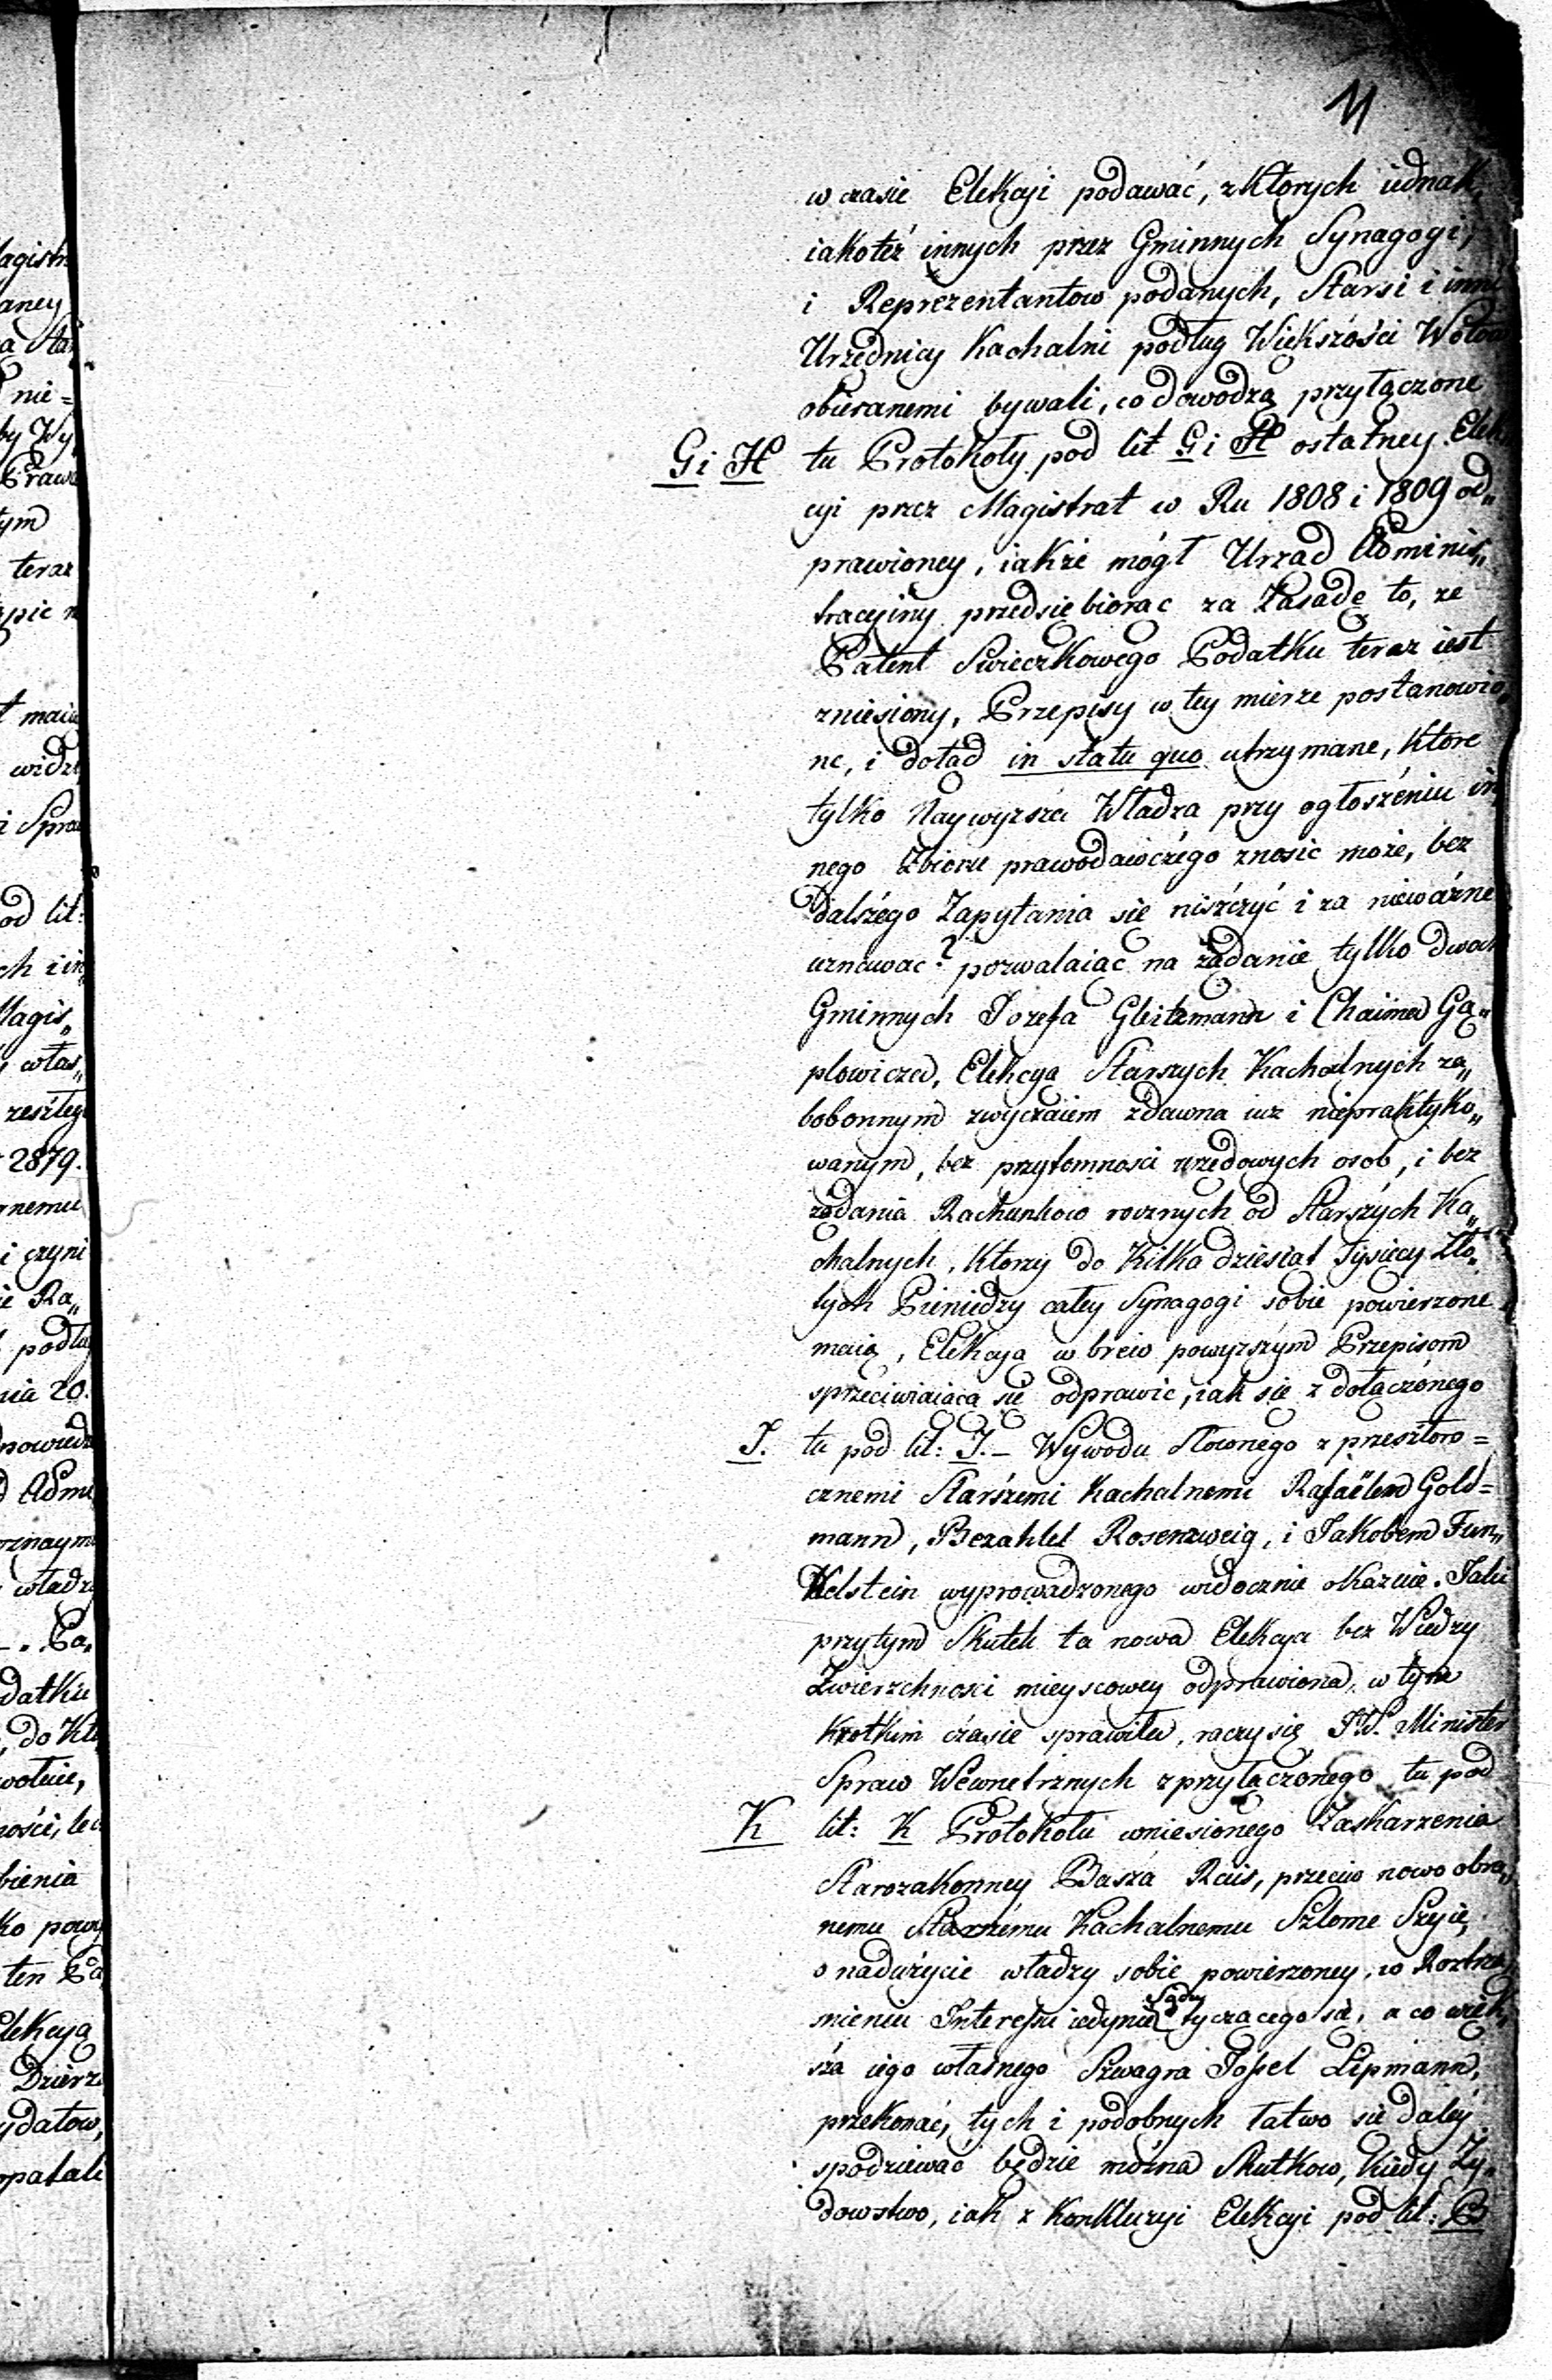 11
w czasie Elekcyi podawać, z Ktorych iednak,
iakoteż innych przez Gminnych Synagogi,
i Reprezentantow podanych, Starsi i inni
Urzędnicy Kachalni podług Większości Wotow
obieranemi bywali, co dowodzą przyłączone
G i H tu Protokoły pod lit G i H ostatney Elek„
cyi przez Magistrat w Ru 1808 i 1809 od„
prawioney, iakże mógł Urząd Adminis„
tracyiny przedsiębiorąc za Zasadę to, że
Patent Swieczkowego Podatku teraz iest
zniesiony, Przepisy w tey mierze postanowio„
ne, i dotąd in statu quo utrzymane, Ktore
tylko Naywyższa Władza przy ogłoszeniu in„
nego Zbioru prawodawczego znosić może, bez
dalszego Zapytania się niszczyć i za nieważne
uznawać? pozwalaiąc na żądanie tylko dwoch
Gminnych Jozefa Gleitzmann i Chaima Gą„
plowicza, Elekcyą Starszych Kachalnych za„
bobonnym zwyczaiem zdawna iuz niepraktyko„
wanym, bez przytomności urzędowych osob, i bez
żądania Rachunkow rocznych od Starszych Ka„
chalnych, Ktorzy do Kilka dziesiąt Tysięcy Zło„
tych Pieniędzy całey Synagogi sobie powierzone
maią, Elekcyą w brew powyższym Przepisom
sprzeciwiaiącą się odprawić, iak się z dołączonego
J. tu pod lit: J. – Wywodu Słownego z przeszłoro=
cznemi Starszemi Kachalnemi Rafaëlem Gold=
mann, Bezahlel Rosenzweig, i Jakobem Fun„
Kelstein wyprowadzonego widocznie okazuie. Jaki
przytym Skutek ta nowa Elekcya bez Wiedzy
Zwierzchności mieyscowey odprawiona, w tym
Krotkim czasie sprawiła, raczy się J.W. Minister
Spraw Wewnetrznych z przyłączonego tu pod
K lit: K Protokołu wniesionego Zaskarzenia
Starozakonney Basza Reis, przeciw nowo obra„
nemu Starszemu Kachalnemu Szlome Szyie,
o nadużycie władzy sobie powierzoney, w Roztrzą„
śnieniu Interessu iedynie Sądu tyczącego się, a co więk„
sza iego własnego Szwagra Jossel Lipmann,
przekonać, tych i podobnych łatwo się daley
spodziewać będzie można Skutkow, Kiedy Ży„
dowstwo, iak z Konkluzyi Elekcyi pod lit: B